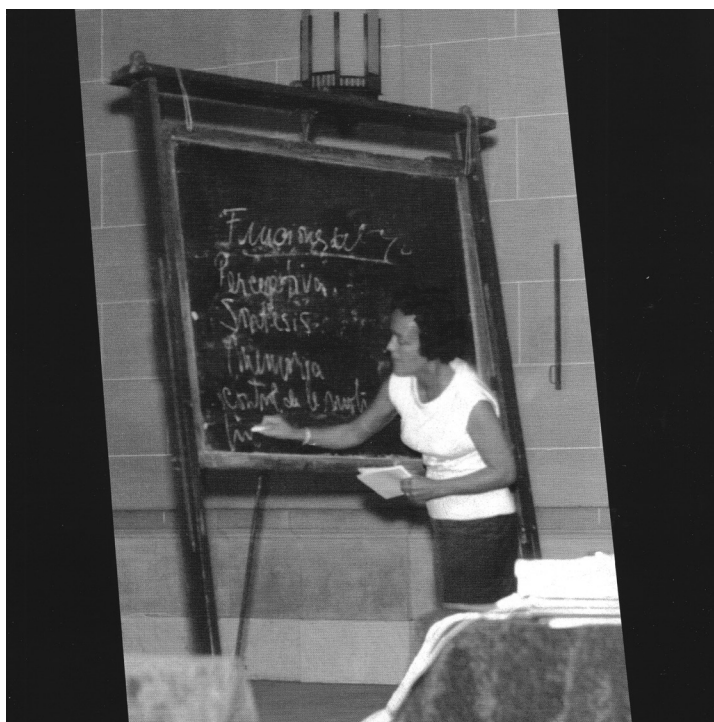 Funciones del
Perceptiva.
Síntesis
Memoria
control de la